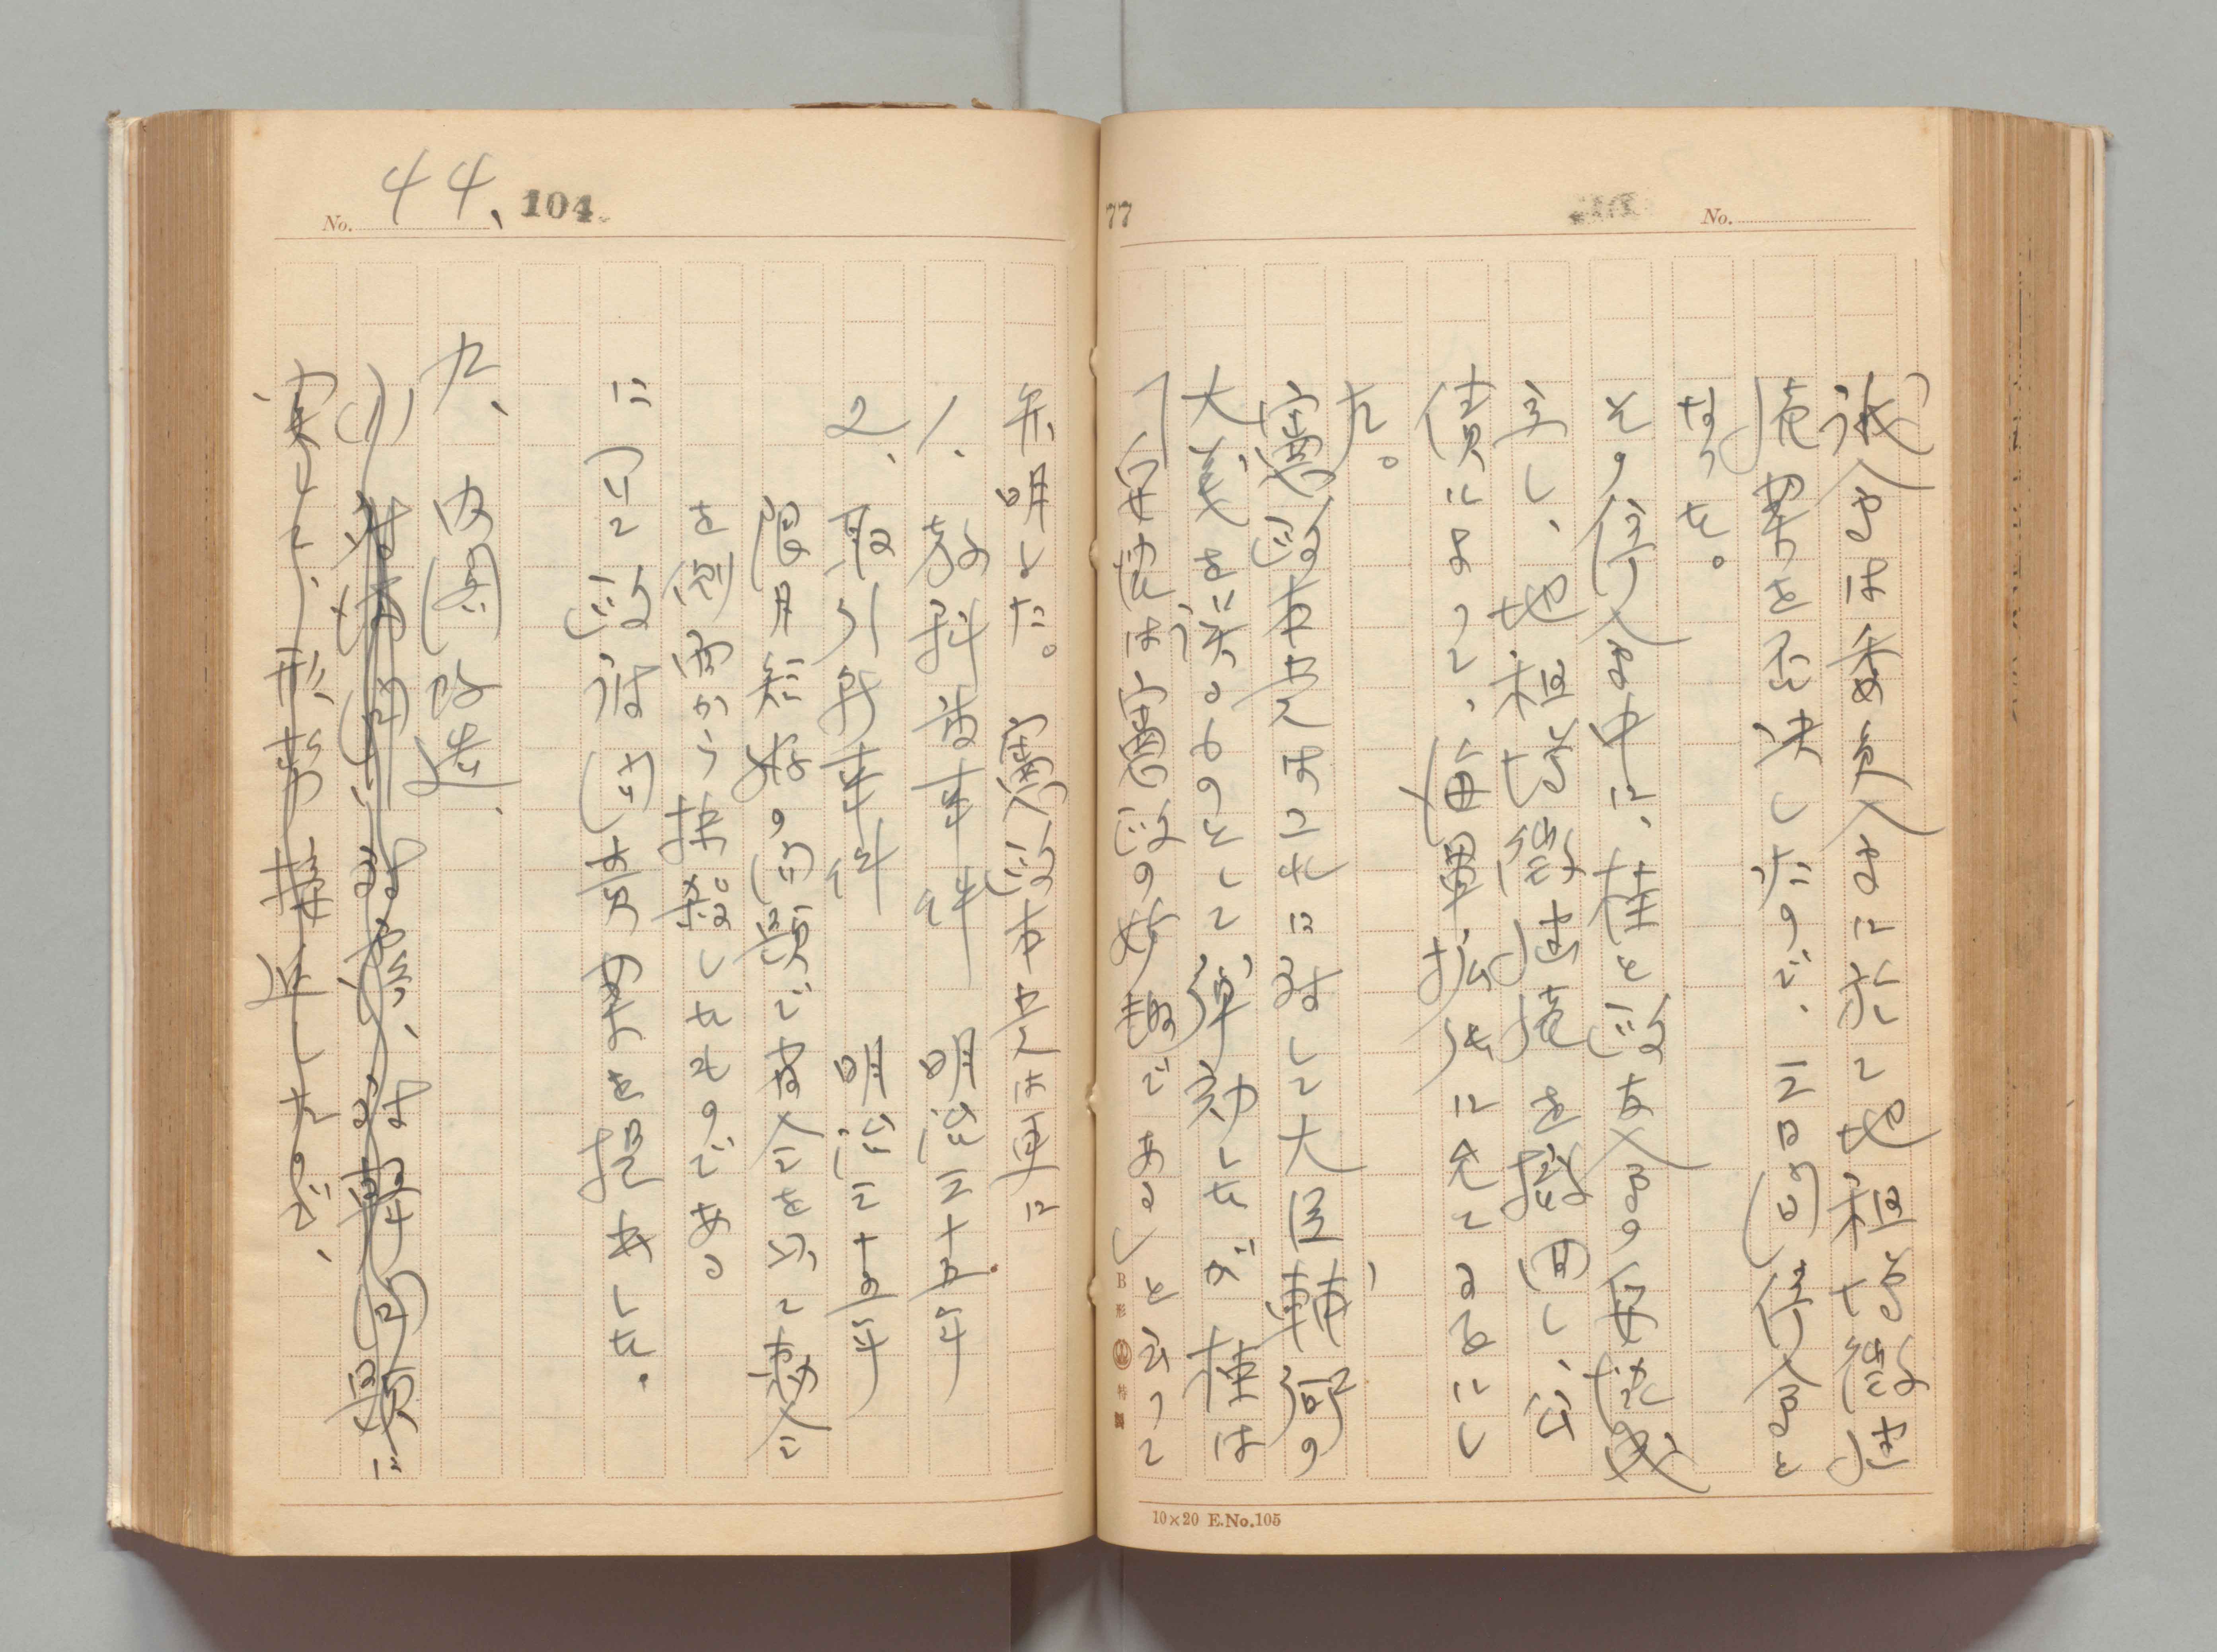 77
No.
議会は委員会に於て地租増徴継
続案を否決したので、三日間停会と
なった。
その停会中に、桂と政友会の妥協成
立し、地租増徴継続を撤回し、公
債によって、海軍拡張に充てるにし
た。
憲政本党はこれに対して大臣輔弼の
大義を誤るものとして弾劾したが桂は
「妥協は憲政の妙趣である」と云って
B形 特製
10×20 E.No.105
No. 44、 104
弁明した。憲政本党は更に
1、教科書事件 明治三十五年
2、取引所事件 明治三十五年
限月短縮の問題で勅令を以て
を側面から抹殺したものである
に 政府問責案を提出した。
九、内閣改造、
実して、形勢接近したが、